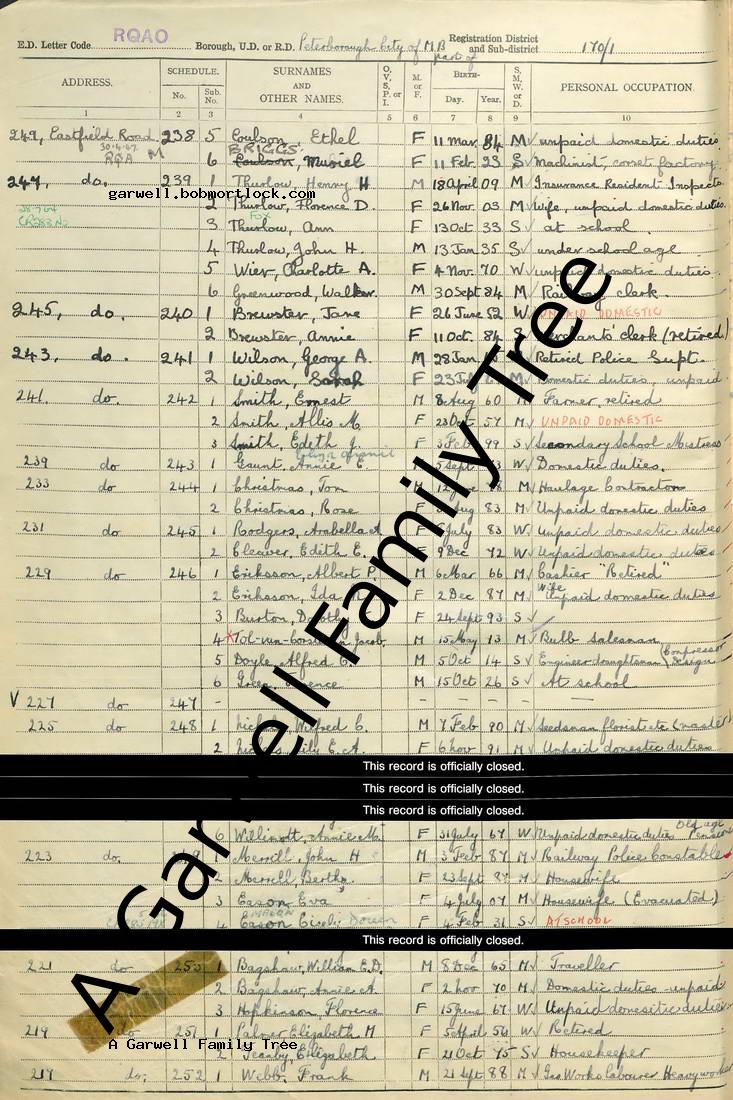 E.D. Letter Code RQAO Borough, U.D. or R.D. Peterborough City of M.B. part of Registration District and Sub-district 170/1
ADDRESS. SCHEDULE. No. Sub. No. SURNAMES AND OTHER NAMES. O., V., S., P. or I. M. or F. BIRTH- Day. Year. S., M., W. or D. PERSONAL OCCUPATION.
1 2 3 4 5 6 7 8 9 10
249, Eastfield Road 238 5 Coulson Ethel F 11 Mar. 84 M unpaid domestic duties
30.4.47 RQA M BRIGGS
6 Coulson, Muriel F 11 Feb. 23 S Machinist, corset factory.
247, do. 239 1 Thurlow, Henry H M 18 April 09 M Insurance Resident Inspecto
garwell.bobmortlock.com
2 Thurlow, Florence D. F 26 Nov. 03 M Wife, unpaid domestic duties.
FOX
3 Thurlow, Ann F 13 Oct 33 S at school.
4 Thurlow, John H. M 13 Jan 35 S under school age
5 Wier, Charlotte A. F 4 Nov. 70 W unpaid domestic duties.
6 Greenwood, Walker. M 30 Sept 84 M Railway clerk.
245, do. 240 1 Brewster, Jane F 26 June 52 W UNPAID DOMESTIC
2 Brewster, Annie F 11 Oct. 84 S clerk (retired)
243, do. 241 1 Wilson, George A. M 28 Jan M Retired Police Supt.
2 Wilson, Sarah F 23 M Domestic duties, unpaid
241. do. 242 1 Smith, Ernest M 8 Aug 60 M Farmer, retired
2 Smith, Allis M. F 23 Oct 57 M UNPAID DOMESTIC
3 Smith, Edeth J. F 3 Feb 99 S Secondary School Mistress
239 do 243 1 Gaunt, Annie E. F 5 Sept W Domestic duties.
233 do 244 1 Christmas, Tom M 12 June M Haulage Contractor
2 Christmas, Rose F Aug 83 M Unpaid domestic duties
231 do 245 1 Rodgers, Arabella A F July 83 W Unpaid domestic duties
2 Cleaver, Edith E. F 9 Dec 72 W Unpaid domestic duties
229 do 246 1 Eriksson, Albert P. M 6 Mar 66 M Cashier "Retired"
2 Eriksson, Ida F 2 Dec 87 M Wife Unpaid domestic duties
3 Burton, F 24 Sept 93 S
4 Jacob. M 15 May 13 M Bulb Salesman
5 Doyle, Alfred C. M 5 Oct 14 S Engineer draughtsman (Compressor Design
6 M 15 Oct 26 S At school
V 227 do 247 - - - - -
225 do 248 1 Wilfred C. M 7 Feb 90 M Seedsman florist etc (master)
2 Lily E. A. F 6 Nov 91 M Unpaid domestic duties
This record is officially closed.
This record is officially closed.
This record is officially closed.
6 Willmott, Annie M. F 31 July 67 W Unpaid domestic duties Old age Pension
223 do. 1 Merrill, John H M 3 Feb 87 M Railway Police Constable
2 Merrill, Bertha F 23 Sept 87 M Housewife
3 Eason Eva F 4 July 07 M Housewife (Evacuated)
4 Eason Doreen F 4 Feb 31 S AT SCHOOL
This record is officially closed.
221 do 250 1 Bagshaw, William E.D. M 8 Dec 65 M Traveller
2 Bagshaw, Annie A F 2 Nov 70 M Domestic duties unpaid
3 Hopkinson, Florence F 15 June 67 W Unpaid domesitic duties
219 do 251 1 Palmer Elizabeth M F 5 April 54 W Retired
A Garwell Family Tree
2 Elizabeth F 21 Oct 75 S Housekeeper
217 do, 252 1 Webb, Frank M 21 Sept 88 M Gas Works Labourer Heavy worker
A Garwell Family Tree